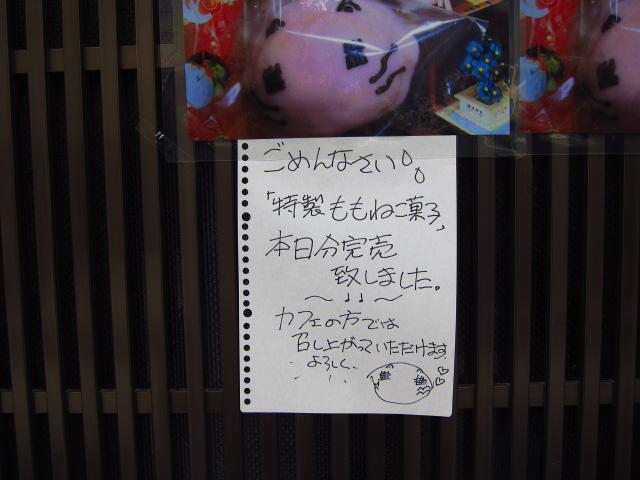 ごめんなさい
「特製ももねこ菓子」
本日分完売
致しました。
～♩♩～
カフェの方では
召し上がっていただけます
よろしく、